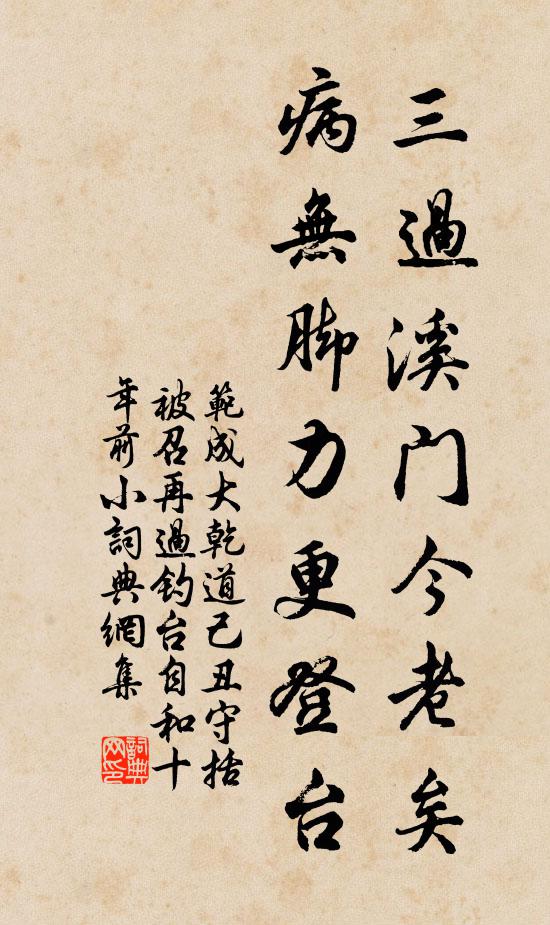 三過溪门今老矣
病無脚力更登台
範成大乾道己丑守括
被召再過钓台自和十
年前小詞典網集
詞典网印